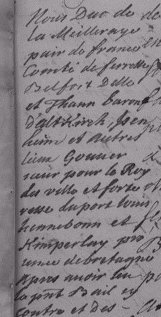 Nous Duc de
la Meilleraye
pair de france
Comté de ferrette
Belfort Delle
et Thann baron
d'altkirch Isen
heim et autres
lieux Gouver
neur pour le Roy
des ville et forte
resse du port louis
hennebont et
Kimperlay pro
uince de bretagne
apres auoir leu
la pnt Bail cy
contre et des